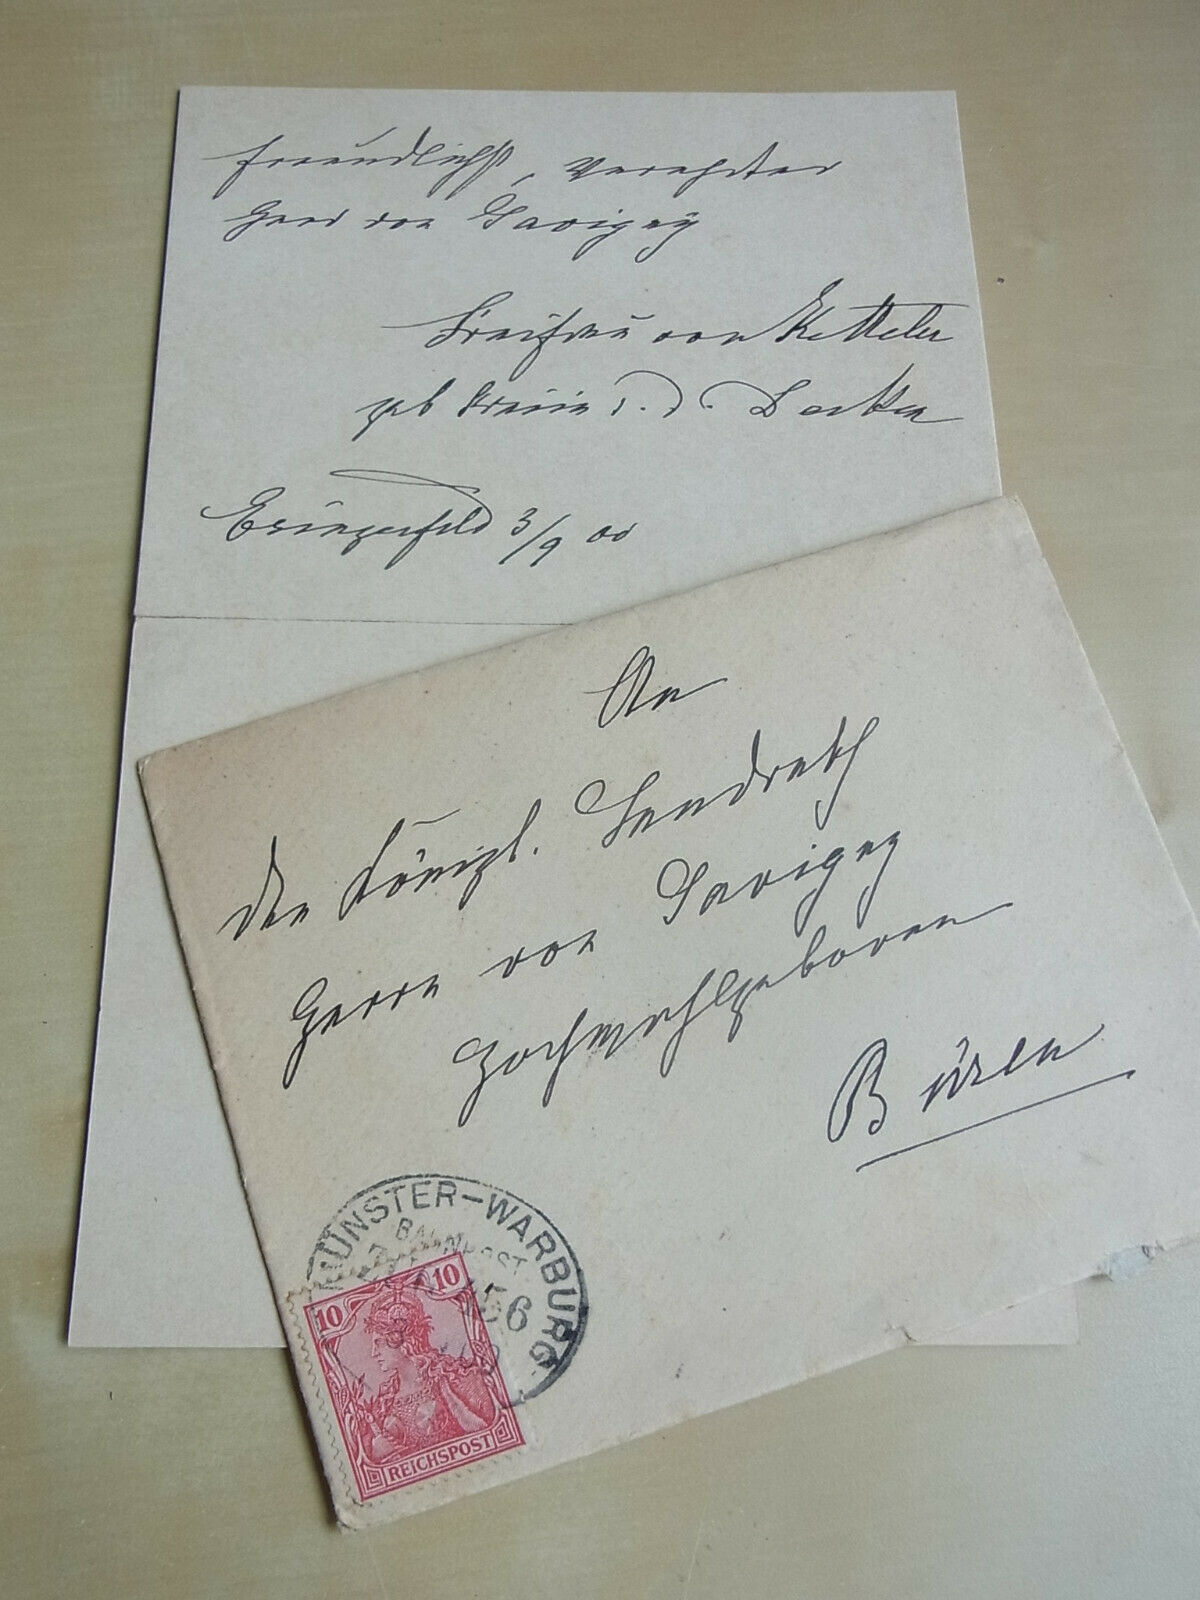 freundlichst, verehrter
Herr von Savigny
Freifrau von Ketteler
geb Freiin v. d. Decken
Eringerfeld 3/9 00
An
den Königl. Landrath
Herrn von Savigny
Hochwohlgeboren
Büren
MÜNSTER-WARBURG
BAHNPOST
156
10 10
REICHSPOST